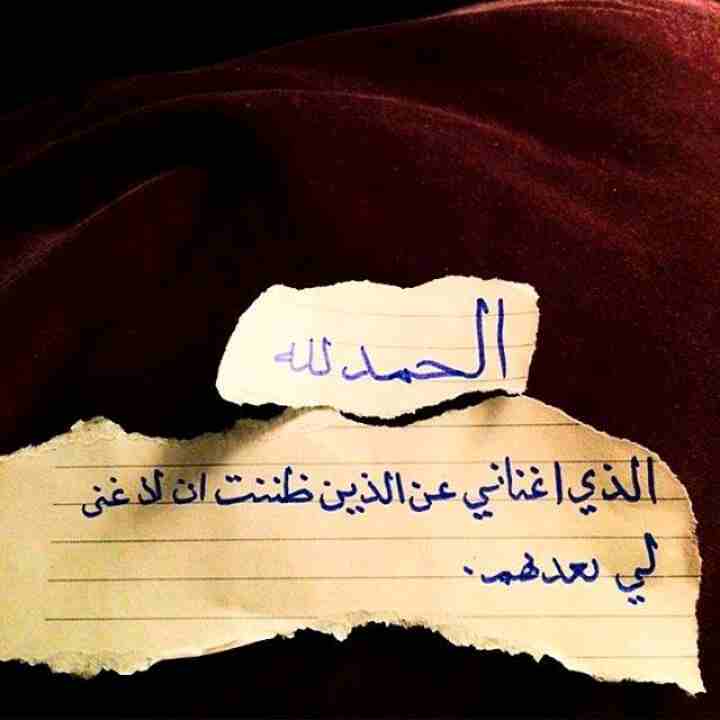 الحمد لله
الذي اغناني عن الذين ظننت ان لا غنى
لي بعدهم.